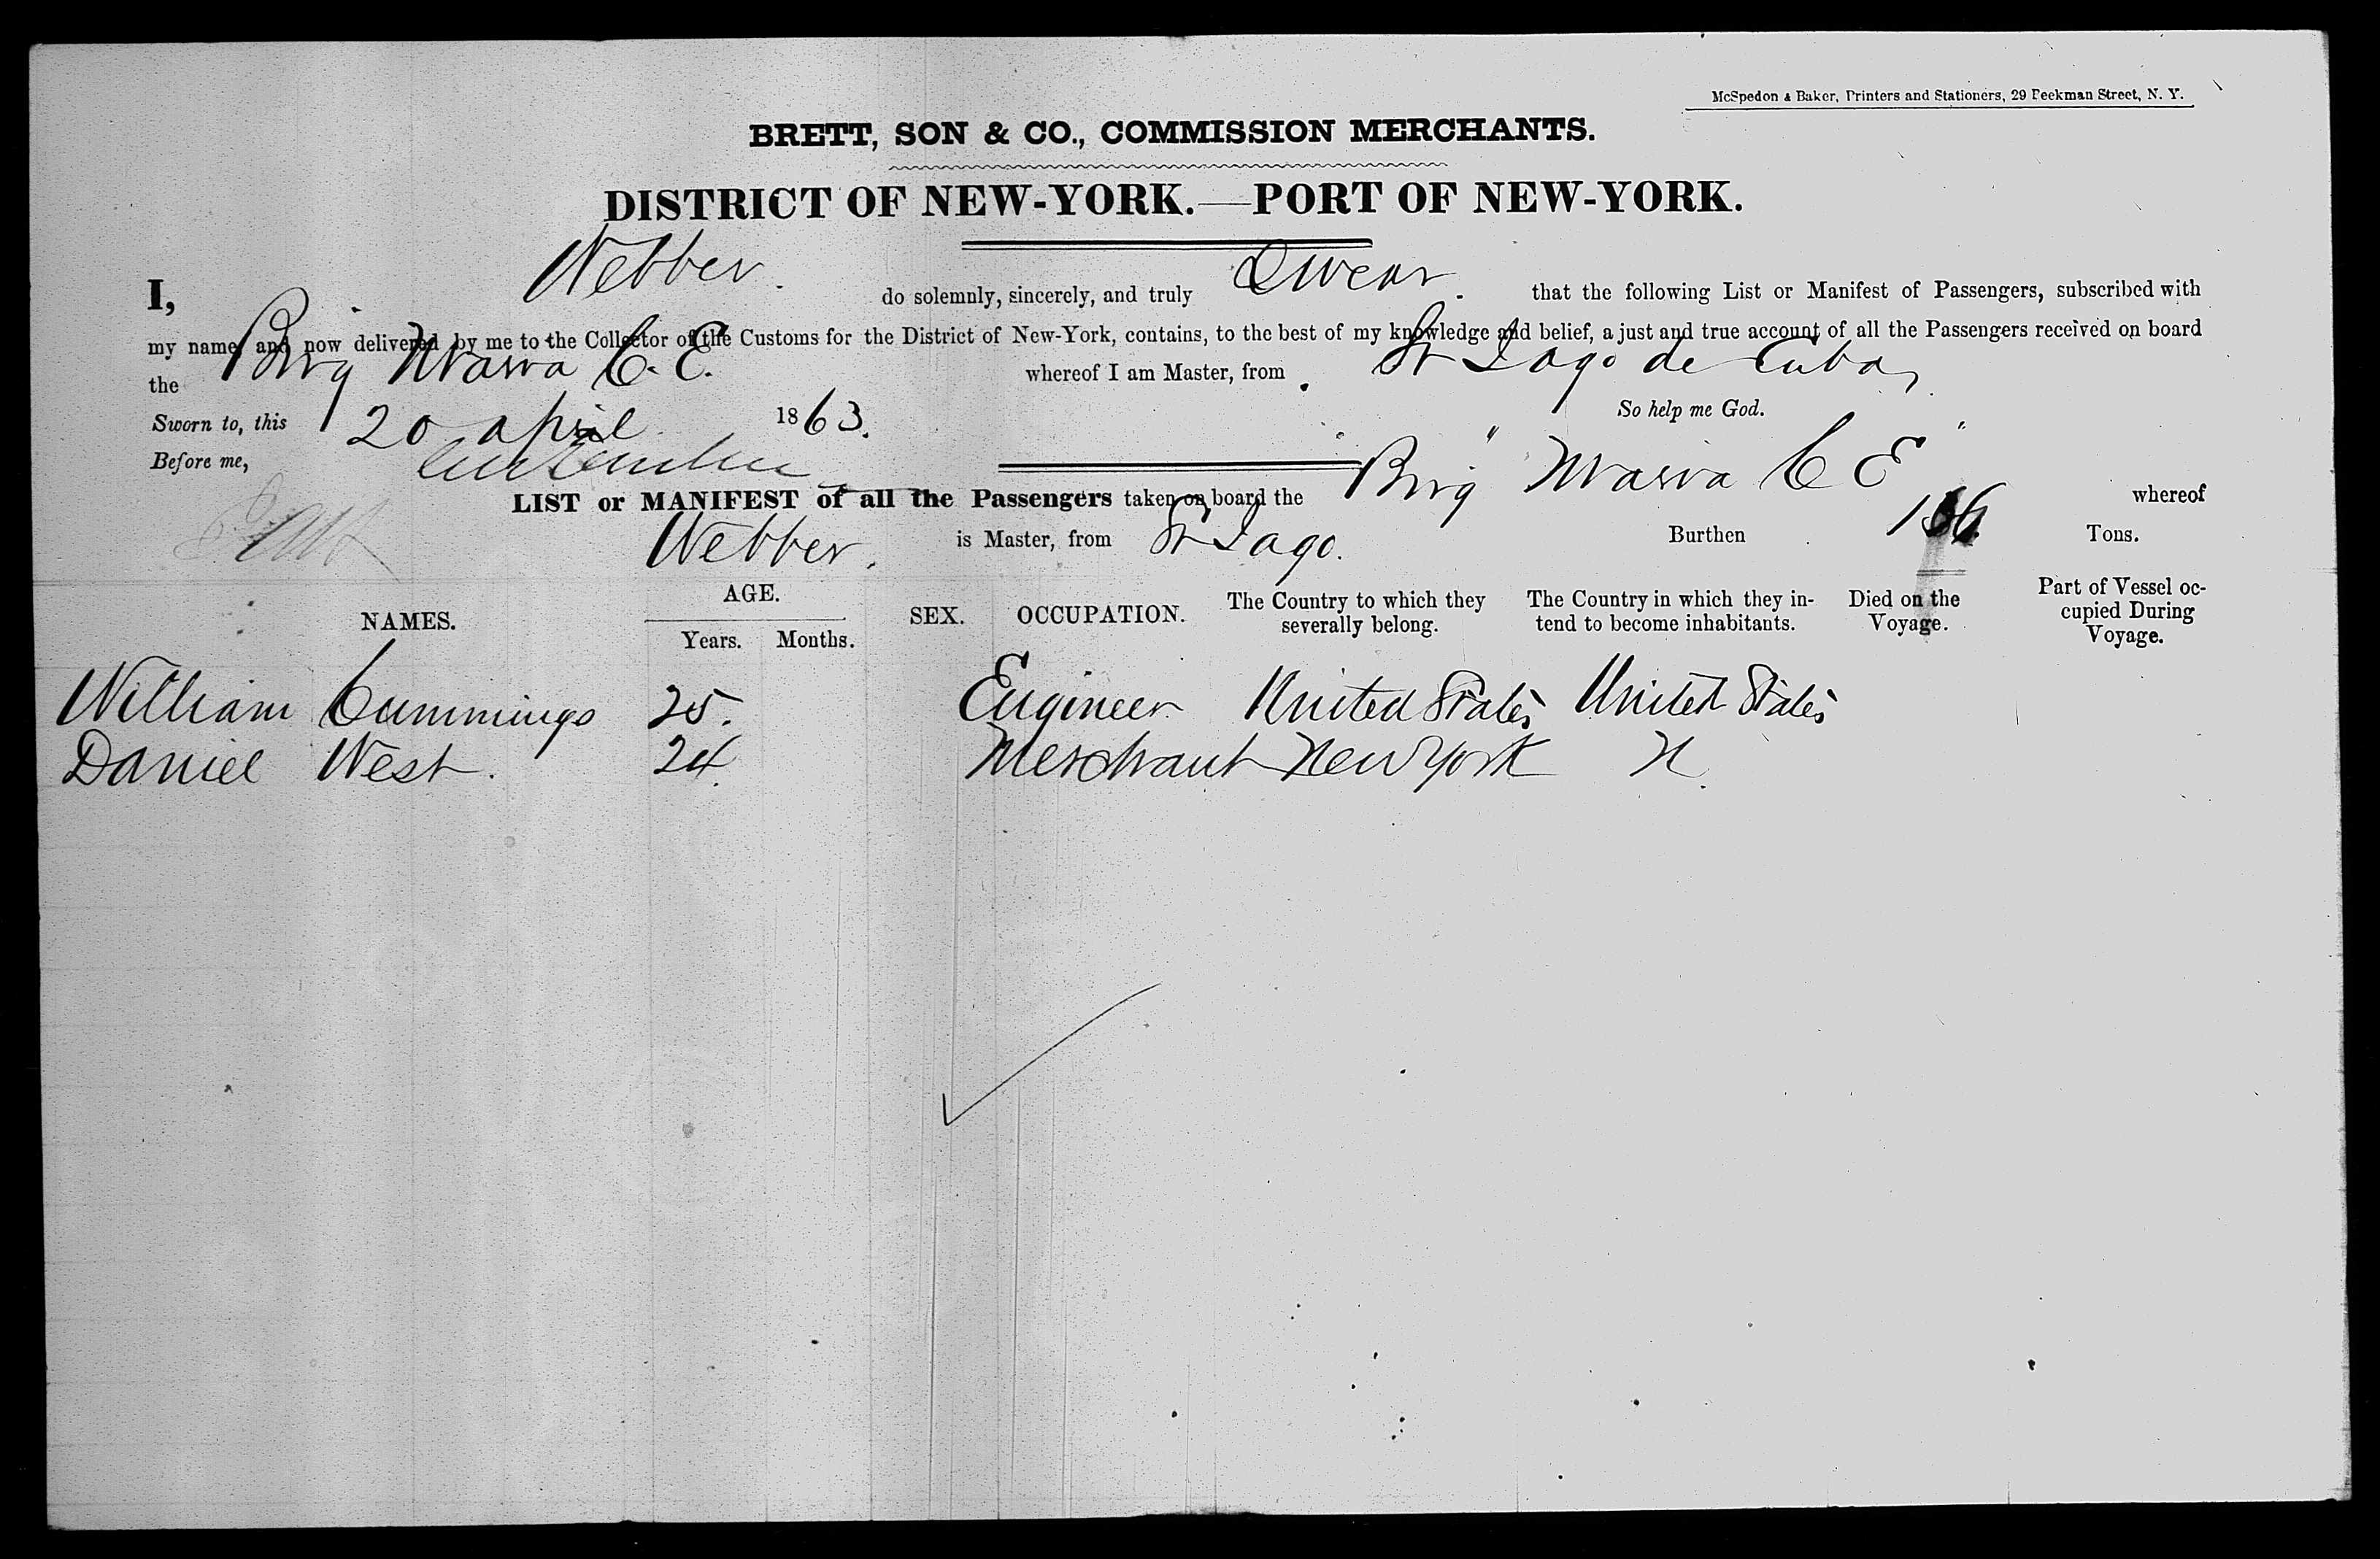 McSpedon & Baker, Printers and Stationers, 29 Beekman Street, N. Y.
BRETT, SON & CO., COMMISSION MERCHANTS.
DISTRICT OF NEW-YORK.—PORT OF NEW-YORK.
I, Webber. do solemnly, sincerely, and truly Swear. that the following List or Manifest of Passengers, subscribed with
my name, and now delivered by me to the Collector of the Customs for the District of New-York, contains, to the best of my knowledge and belief, a just and true account of all the Passengers received on board
the Brig Maria C. E. whereof I am Master, from St Iago de Cuba,
Sworn to, this 20 april 1863. So help me God.
Before me,
LIST or MANIFEST of all the Passengers taken on board the Brig "Maria C E" whereof
Webber. is Master, from St Iago. Burthen Tons.
NAMES. AGE. Years. Months. SEX. OCCUPATION. The Country to which they severally belong. The Country in which they intend to become inhabitants. Died on the Voyage. Part of Vessel occupied During Voyage.
William Cummings 25. Engineer United States United States
Daniel West. 24 Merchant New York